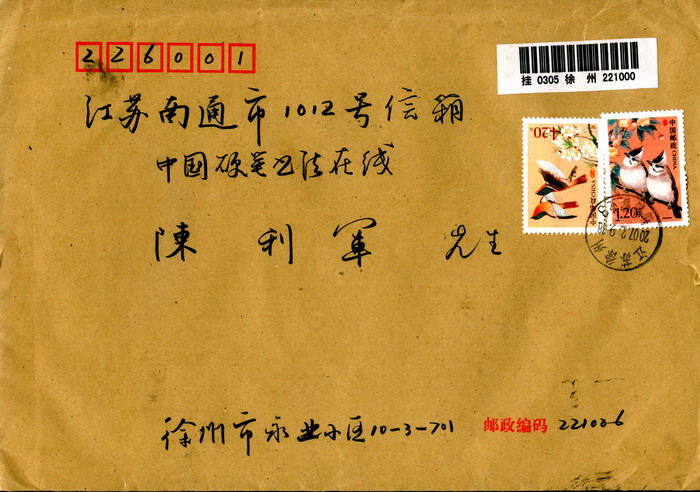 226001
挂 0305 徐 州 221000
江苏南通市1012号信箱
中国硬笔书法在线
陳 利 軍 先生
4.20
中国邮政 CHINA
中国邮政 CHINA
1.20元
江苏徐州
2007.2.9
徐州市永业小区10-3-701 邮政编码 221026